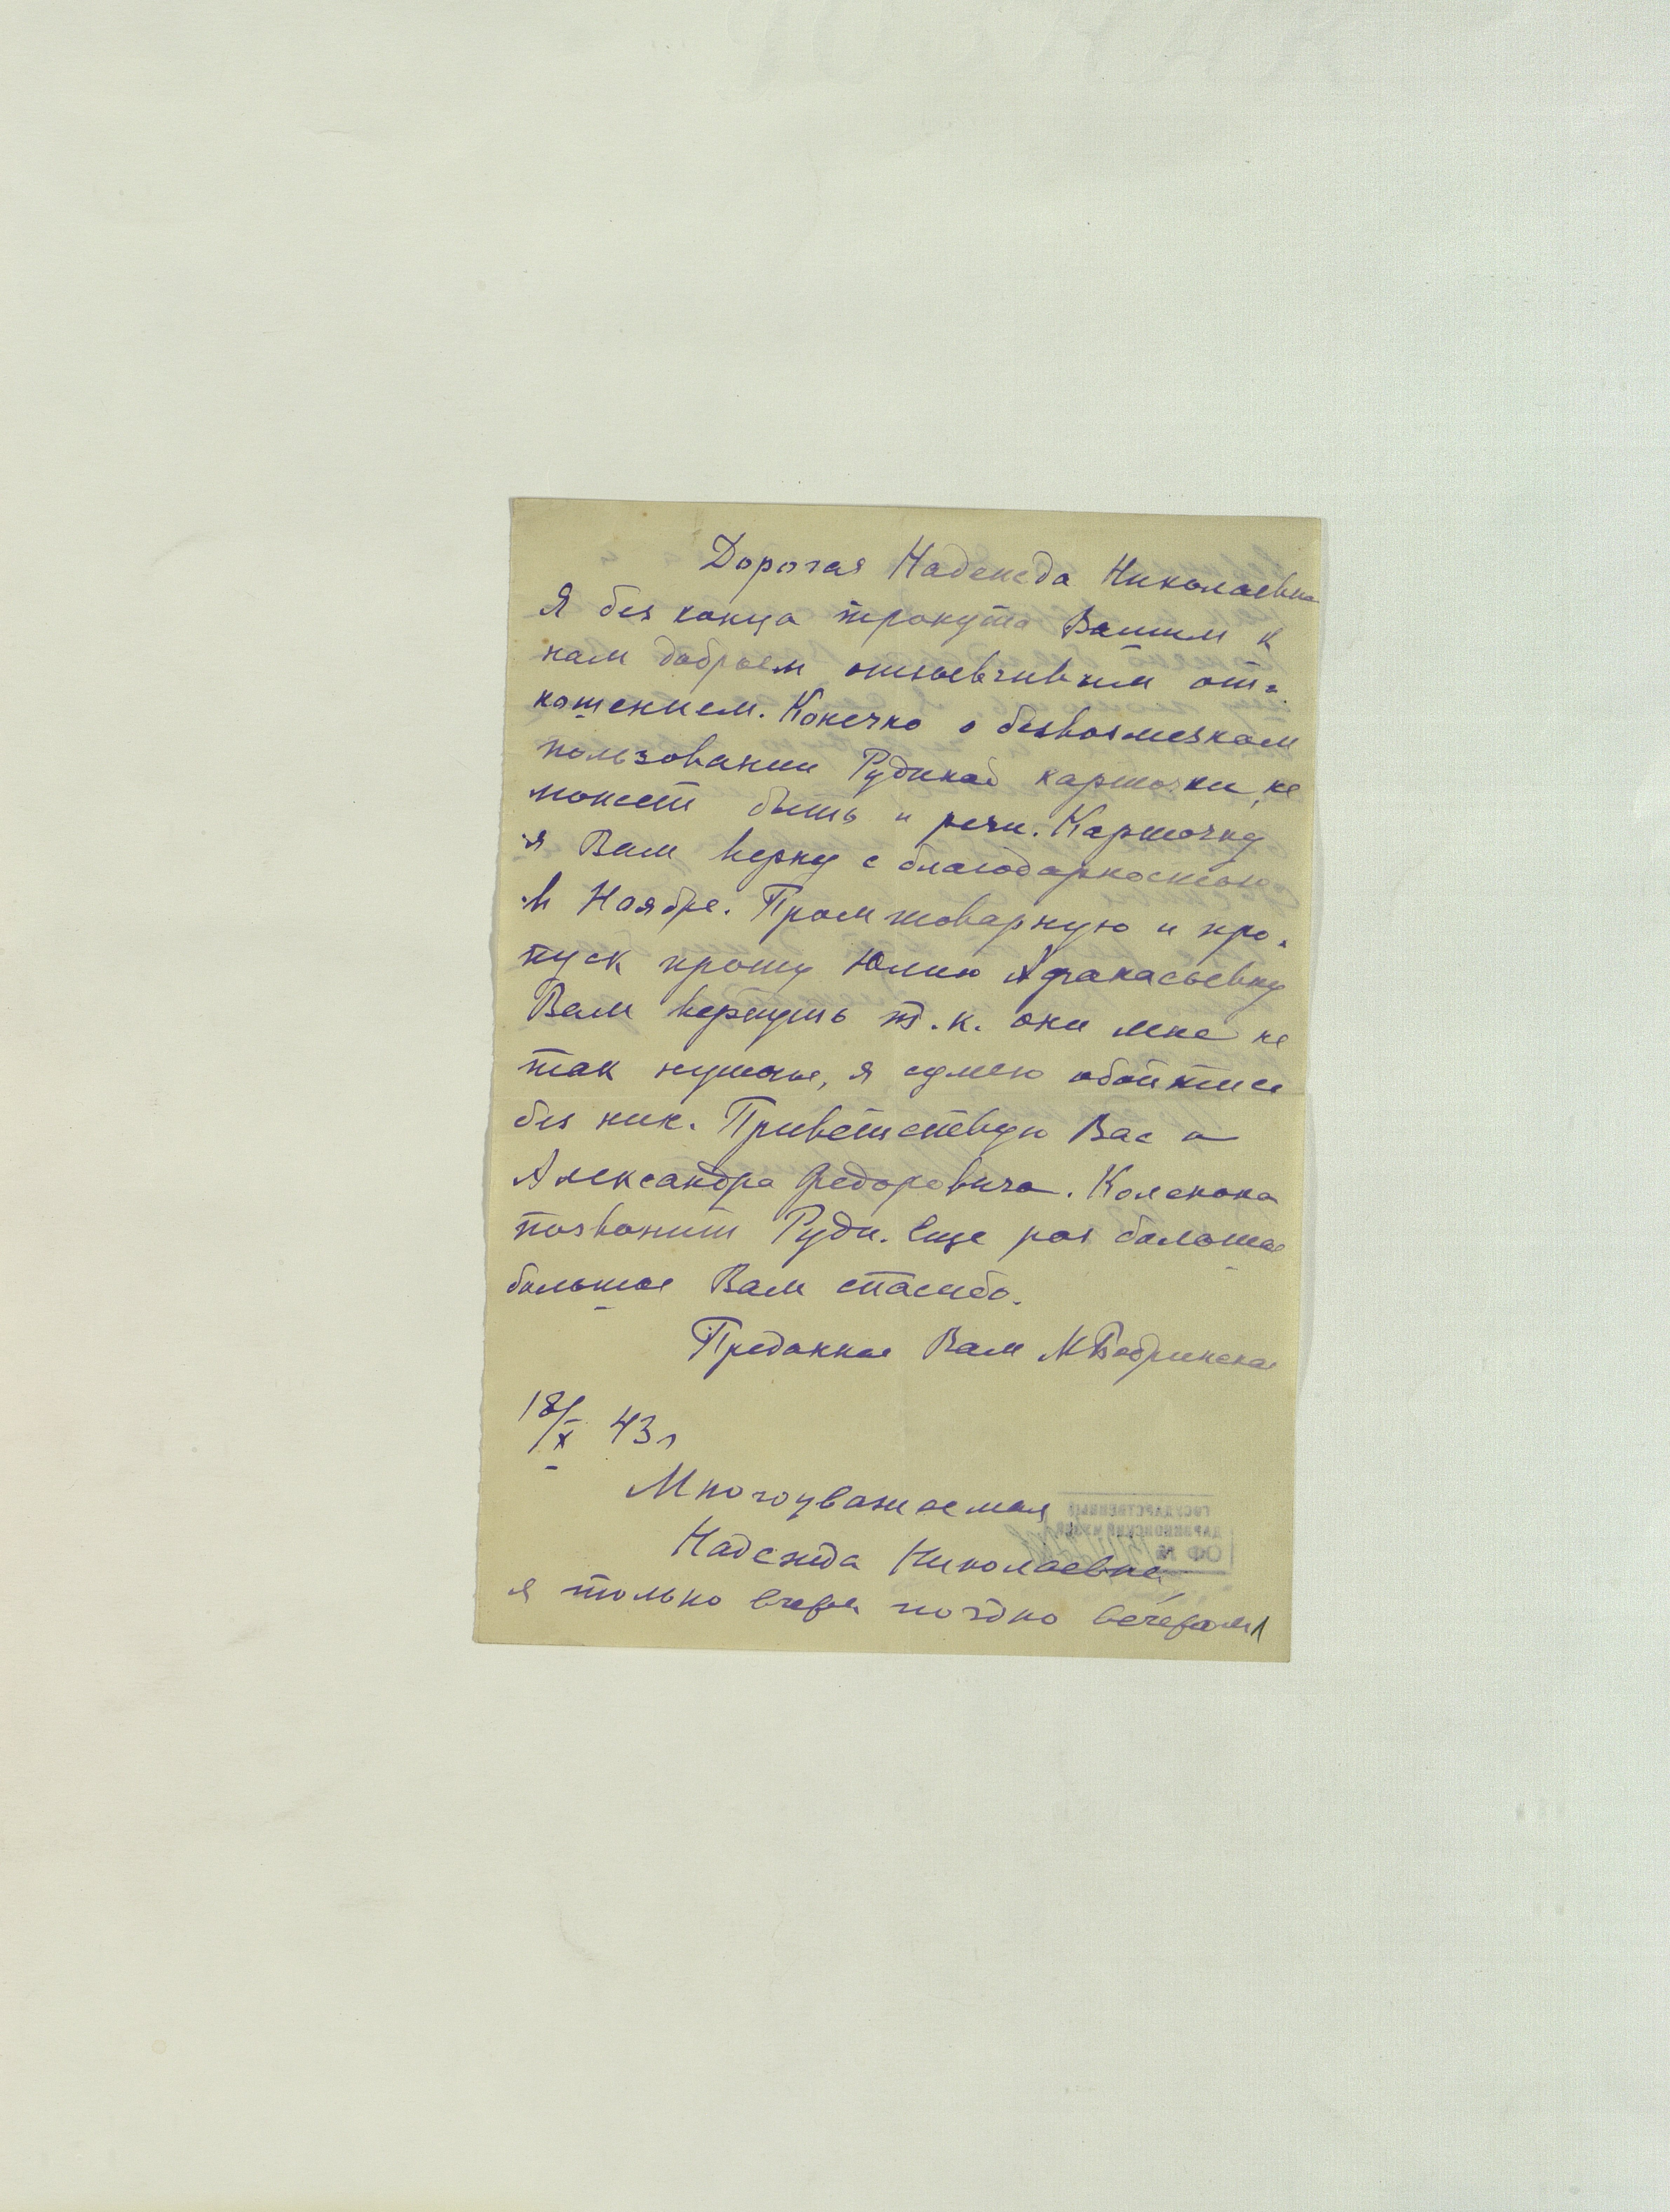 Дорогая Надежда Николаевна
Я без конца тронута Вашим к
нам добрым отзывчивым от-
ношением. Конечно о безвозмезном
пользовании Рудиной карточки, не
может быть и речи. Карточку
я Вам верну с благодарностью
в Ноябре. Промтоварную и про-
пуск прошу Юлию Афанасьевну
Вам вернуть т.к. они мне не
так нужны, я сумею обойтись
без них. Приветствую Вас и
Александра Федоровича.
позвонит Руди. Еще раз большое
большое Вам спасибо.
Преданная Вам М Бобринская
18/X 43 г
Многоуважаемая
Надежда Николаевна,
я только вчера поздно вечером
ГОСУДАРСТВЕННЫЙ
ДАРВИНОВСКИЙ МУЗЕЙ
ОФ №